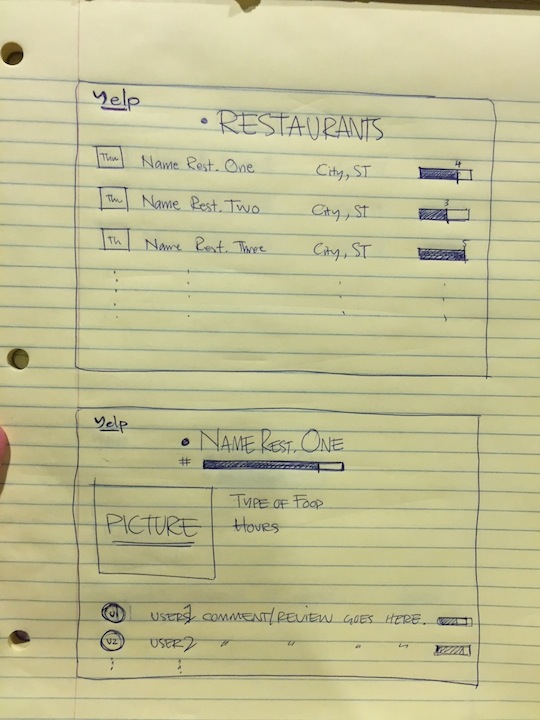 Yelp
• RESTAURANTS
Thu Name Rest. One City, ST 4
Th Name Rest. Two City, ST 3
Th Name Rest. Three City, ST 5
Yelp
• NAME REST. ONE
#
PICTURE
TYPE OF FOOD
HOURS
U1 USER1 COMMENT/REVIEW GOES HERE.
U2 USER2 " " " "